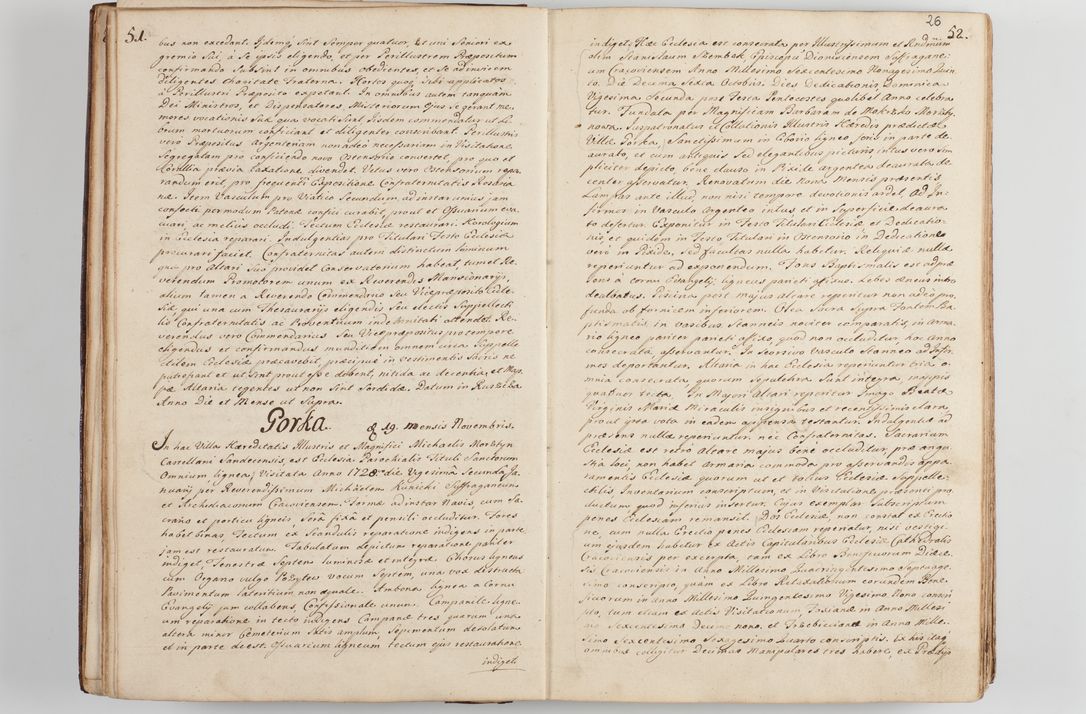 51.
bus non excedant. Ijdemq; Sint Semper quatuor, et uni Seniori ex
gremio Sui, à Se ipsis eligendo, et per Perillustrem Præpositum
confirmando Subsint in omnibus obedientes, et Se ad invicem
Diligentes charitate Fraterna. Hortos quoq; Sibi applicatos
à Perillustri Præposito expetant. In omnibus autem tanquam
Dei Ministros, et Dispensatores Misteriorum Ejus Se gerant me-
mores vocationis Suæ, qua vocati Sunt
brum mortuorum conficiant et diligenter conscribant. Perillustris
vero Præpositus Argenteriam non adeo necessariam in Visitatione
Segregatam pro conficiendo novo Ostensorio convertet, pro quo et
prævia taxatione divendet. Vetus vero Ostensorium repa-
randum erit, pro frequenti Expositione Confraternitatis Rosaria-
næ. Item Vasculum pro Viatico Secundum, ad instar unius jam
confecti per modum Patenæ confici curabit, prout et Ossuarium eva-
cuari, ac melius occludi. Tectum Ecclesiæ restaurari. Horologium
in Ecclesia reparari. Indulgentias pro Titulari Festo Ecclesiæ
procurari faciet. Confraternitas autem distinctim luminum
quæ pro Altari Suo providet Conservatorium habeat, tum et Re-
verendum Promotorem unum ex Reverendis Mansionarijs,
alium tamen a Reverendo Commendario Seu Vicepræposito Eccle-
siæ qui una cum Thesaurarijs eligendis Seu electis Suppellecti-
lis Confraternitatis ac Proventuum indemnitati attendet. Re-
verendus vero Commendarius Seu Vicepræpositus pro tempore
eligendus et confirmandus munditiem omnem circa Suppelle-
ctilem Ecclesiæ præcavebit, præcipuè in vestimentis Sacris ne
putrefiant et ut Sint prout esse debent, nitida ac decentia, et Map-
pæ Altaria tegentes ut non Sint Sordidæ. Datum in
Anno Die et Mense ut Supra.
Gorka. 19. mensis Novembris.
In hac Villa Hæreditatis Illustris et Magnifici Michaelis Morsztyn
Castellani Sandecensis, est Ecclesia Parochialis Tituli Sanctorum
Omnium lignea; Visitata Anno 1728. die Vigesima Secunda Ja-
nuarij per Reverendissimum Michaelem Kunicki Suffraganeum
et Archidiaconum Cracoviensem. Forma ad instar Navis, cum Sa-
crario et porticu ligneis, Sera fixa et pensili occluditur. Fores
habet binas. Tectum ex Scandulis reparatione indigens in parte
jam est restauratum. Tabulatum depictum reparatione pariter
indiget. Fenestræ Septem luminosæ et integræ. Chorus ligneus
cum Organo vulgo Pozytyw vocum Septem, una vox destructa
Pavimentum lateritium non æquale. Ambona lignea a Cornu
Evangelij jam collabens, Confessionale unum. Campanile ligne-
um reparatione in tecto indigens Campanæ tres quarum una
altera minor Cæmeterium Satis amplum, Sepimentum desolatum
et in parte deest. Ossuarium ligneum tectum ejus restauratione
indiget.
26
52.
indiget. Hæc Ecclesia est consecrata per Illustrissimum et Rndmum
olim Stanislaum Szembek Episcopum Dionisiensem Suffragane-
um Cracoviensem Anno Millesimo Sexcentesimo Nonagesimo Quin-
to. Die Decima Sexta Octobris. Dies Dedicationis Dominica
Vigesima Secunda post Festa Pentecostes quolibet Anno celebra-
tur. Fundata per Magnificam Barbaram de Mokrsko
nowa. Juspatronatus et Collationis Illustris Hæredis prædictæ
Villæ Gorka, Sanctissimum in Ciborio ligneo foris in parte de-
aurato, et cum antiquis Sed elegantibus picturis intus vero Sim-
pliciter depicto, bene clauso in Pixide argentea deaurata de-
center asservatur. Renovatum die Nona Mensis præsentis.
Lampas ante illud, non nisi tempore devotionis ardet. Ad In-
firmos in Vasculo Argenteo intus et in Superficie deaura-
to defertur. Exponitur in Festo Titulari Ecclesiæ, et Dedicatio-
nis, et quidem in Festo Titulari in Ostensorio in Dedicatione
vero in Pixide, Sed facultas nulla habetur. Reliquiæ nullæ
reperiuntur ad exponendum. Fons Baptismalis est ad præ-
sens à cornu Evangelij, ligneus parieti affixus. Lebes æneus intro
dealbatus. Piscina post Majus altare reperitur non adeo pro-
funda ob fornicem inferiorem. Olea Sacra Supra Fontem Ba-
ptismalem, in vasculis Stanneis noviter comparatis, in Arma-
rio ligneo pariter parieti affixo, quod non occluditur, hoc Anno
consecrata asservantur. In Seorsivo Vasculo Stanneo ad Infir-
mos deportantur. Altaria in hac Ecclesia reperiuntur tria o-
mnia consecrata quorum Sepulchra Sunt integra, mappis
quatuor tecta. In Majori Altari reperitur Imago Beatæ
Virginis Mariæ Miraculis insignibus et recentissimis clara
prout ipsa vota in eadem appensa testantur. Indulgentiæ ad
præsens nullæ reperiuntur. nec Confraternitas. Sacrarium
Ecclesiæ est retro Altare majus bene occluditur, præ angu-
stia loci, non habet armaria commoda pro asservandis appa-
ramentis Ecclesiæ quorum ut et totius Ecclesiæ Suppelle-
ctilis, Inventarium conscriptum, et in Visitatione præsenti pro-
ductum quod inferius insertum Cujus exemplar Subscriptum
penes Ecclesiam remansit. Dos Ecclesiæ, non constat ex Erectio-
ne, cum nulla Erectio penes Ecclesiam reperiatur nisi vestigi-
um ejusdem habetur ex Actis Capitularibus Ecclesiæ Cathedralis
Cracoviensis per excerpta, tam ex Libro Beneficiorum Diæce-
sis Cracoviensis in Anno Millesimo Quadringentesimo Septuage-
simo conscripto, quam ex Libro Retaxationum eorundem Bene-
ficiorum in Anno Millesimo Quingentesimo Vigesimo Nono conscri-
pto, tum etiam ex Actis Visitationum Foxianæ in Anno Millesi-
mo Sexcentesimo Decimo nono, et Trzebicianæ in Anno Mille-
simo Sexcentesimo Sexagesimo Quarto conscriptis. Ex his itaq;
omnibus colligitur Decimas Manipulares tres habere, ex Prædijs